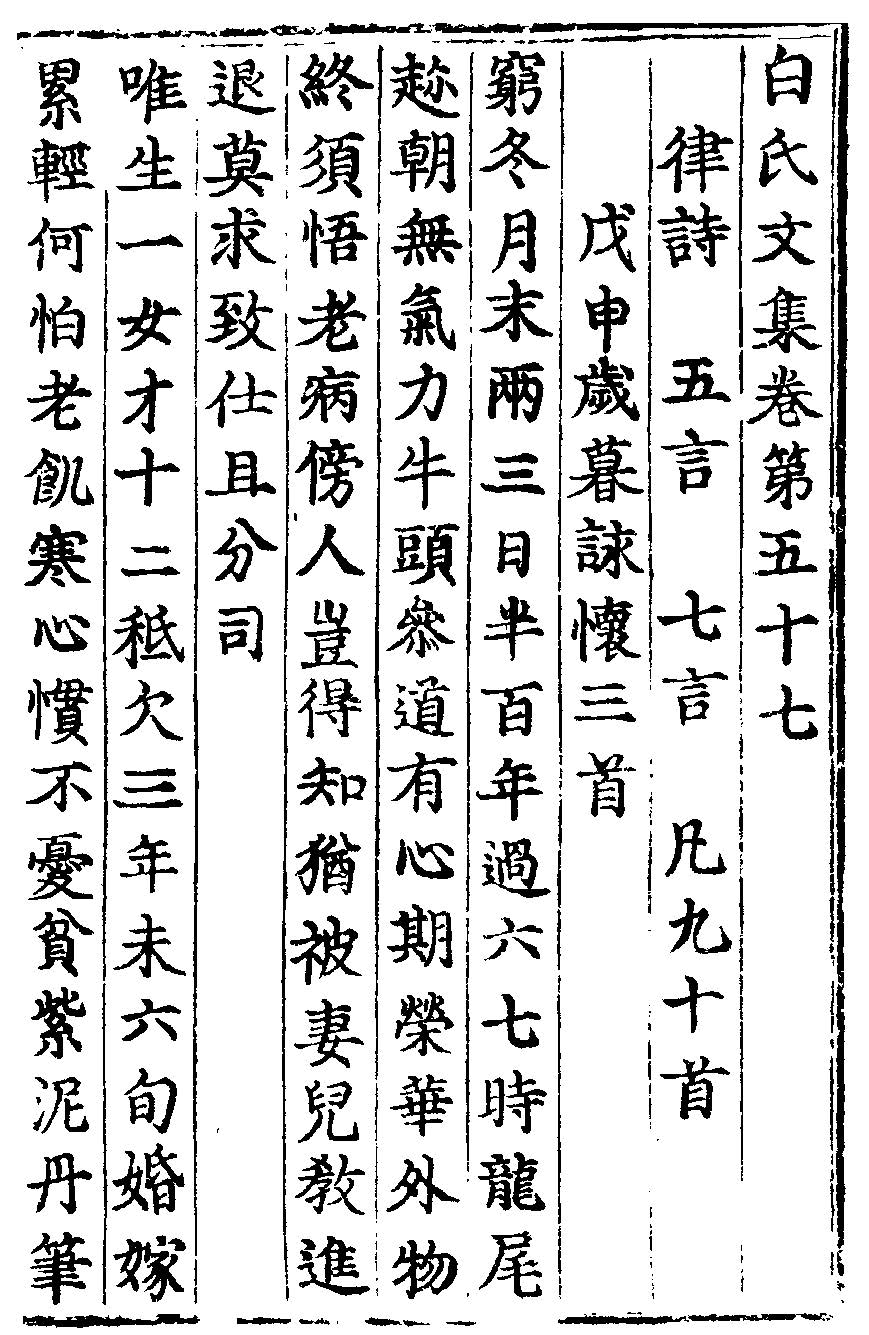 白氏文集卷第五十七
律詩 五言 七言 凡九十首
戊申歲暮詠懷三首
窮冬月末兩三日半百年過六七時龍尾
趂朝無氣力牛頭叅道有心期榮華外物
終須悟老病傍人豈得知猶被妻兒教進
退莫求致仕且分司
唯生一女才十二秪欠三年未六旬婚嫁
累輕何怕老飢寒心慣不憂貧紫泥丹筆